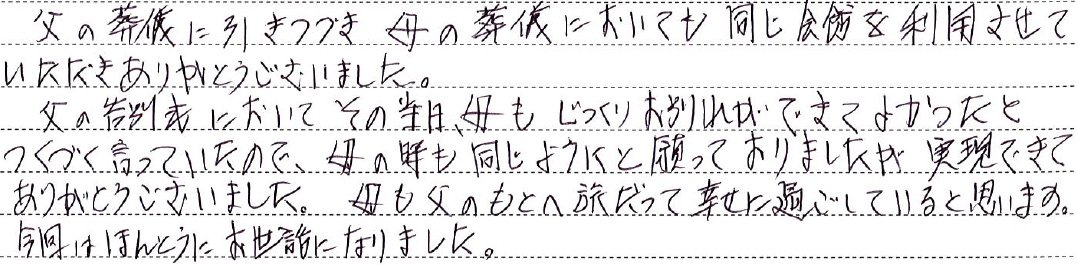 父の葬儀に引きつづき 母の葬儀においても 同じ会館を利用させて
いただきありがとうございました。
父の告別式において その当日、母も じっくりお別れができてよかったと
つくづく言っていたので、母の時も同じようにと願っておりましたが 実現できて
ありがとうございました。 母も父のもとへ旅だって幸せに過ごしていると思います。
今回はほんとうにお世話になりました。